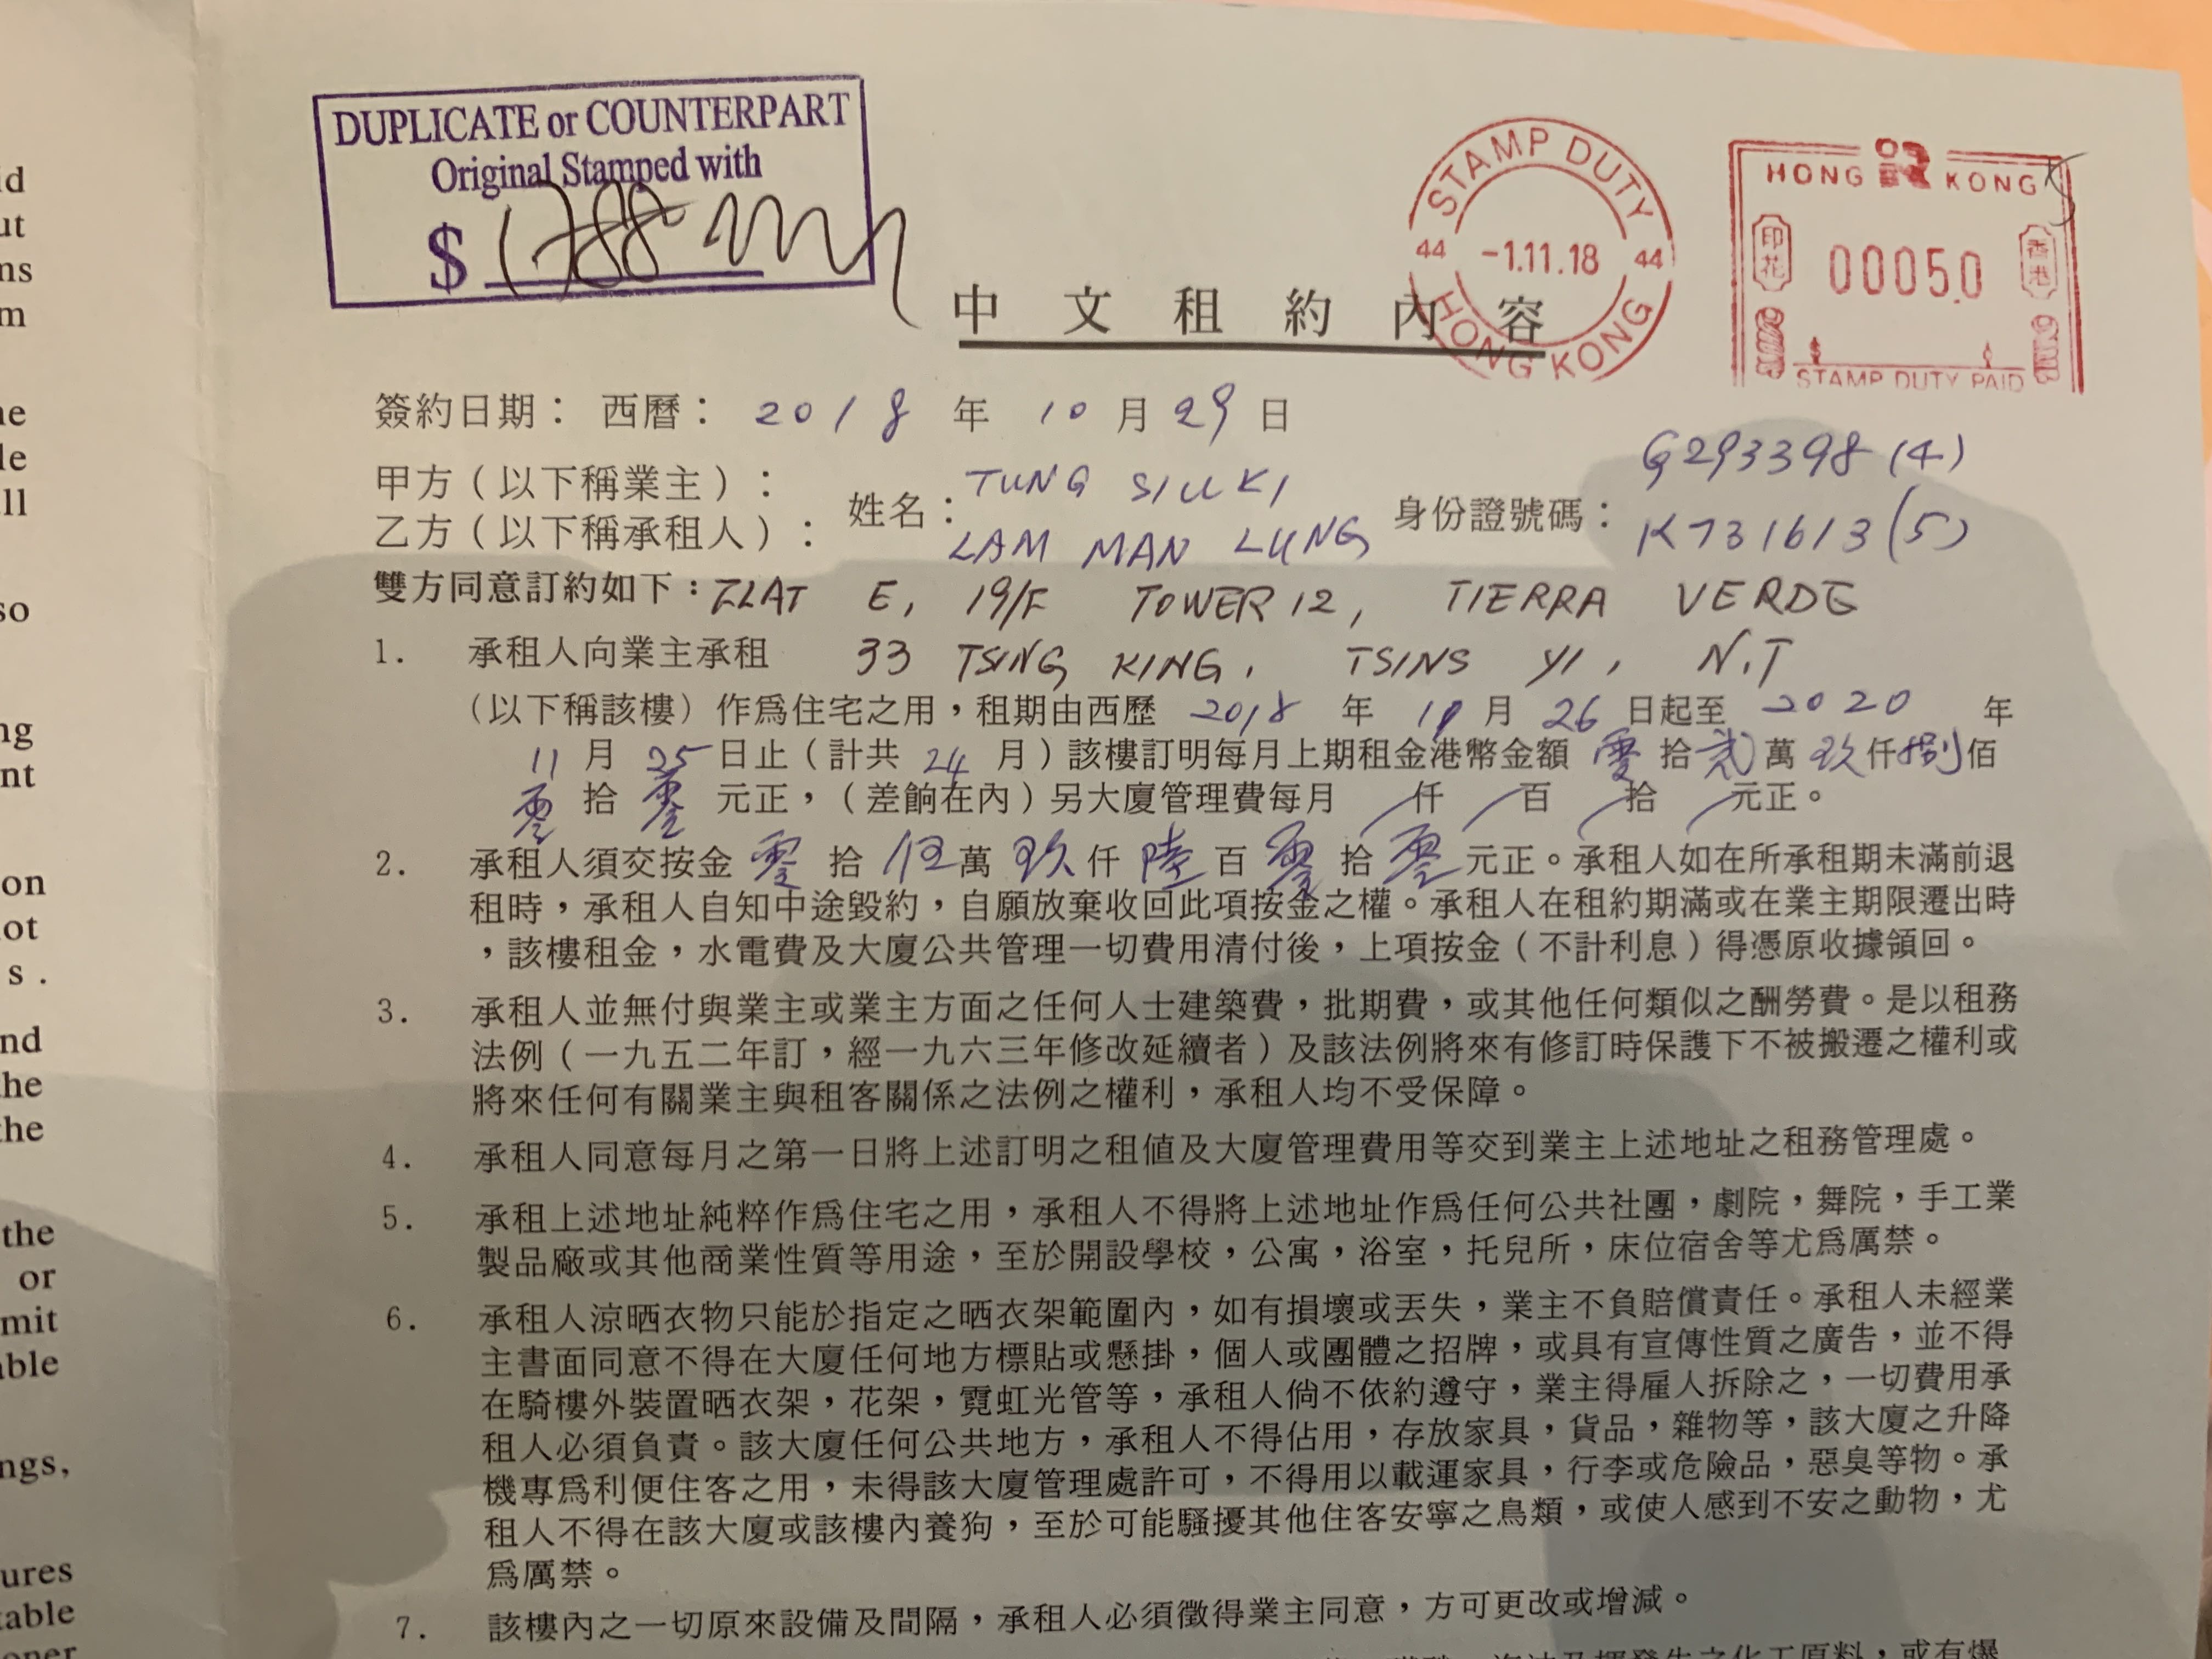 DUPLICATE or COUNTERPART
Original Stamped with
$ 1788
STAMP DUTY
44 -1.11.18 44
HONG KONG
HONG KONG
印花 00050 香港
STAMP DUTY PAID
中文租約內容
簽約日期： 西曆： 2018 年 10 月 29 日
甲方（以下稱業主）： 姓名： TUNG SIU KI 身份證號碼： G293398(4)
乙方（以下稱承租人）： LAM MAN LUNG K731613(5)
雙方同意訂約如下： FLAT E, 19/F TOWER 12, TIERRA VERDE
1. 承租人向業主承租 33 TSING KING, TSINS YI, N.T
（以下稱該樓）作爲住宅之用，租期由西歷 2018 年 11 月 26 日起至 2020 年
11 月 25 日止（計共 24 月）該樓訂明每月上期租金港幣金額 零 拾 貳 萬 玖 仟 捌 佰
零 拾 零 元正，（差餉在內）另大廈管理費每月 仟 百 拾 元正。
2. 承租人須交按金 零 拾 伍 萬 玖 仟 陸 百 零 拾 零 元正。承租人如在所承租期未滿前退
租時，承租人自知中途毀約，自願放棄收回此項按金之權。承租人在租約期滿或在業主期限遷出時
，該樓租金，水電費及大廈公共管理一切費用清付後，上項按金（不計利息）得憑原收據領回。
3. 承租人並無付與業主或業主方面之任何人士建築費，批期費，或其他任何類似之酬勞費。是以租務
法例（一九五二年訂，經一九六三年修改延續者）及該法例將來有修訂時保護下不被搬遷之權利或
將來任何有關業主與租客關係之法例之權利，承租人均不受保障。
4. 承租人同意每月之第一日將上述訂明之租值及大廈管理費用等交到業主上述地址之租務管理處。
5. 承租上述地址純粹作爲住宅之用，承租人不得將上述地址作爲任何公共社團，劇院，舞院，手工業
製品廠或其他商業性質等用途，至於開設學校，公寓，浴室，托兒所，床位宿舍等尤爲厲禁。
6. 承租人涼晒衣物只能於指定之晒衣架範圍內，如有損壞或丟失，業主不負賠償責任。承租人未經業
主書面同意不得在大廈任何地方標貼或懸掛，個人或團體之招牌，或具有宣傳性質之廣告，並不得
在騎樓外裝置晒衣架，花架，霓虹光管等，承租人倘不依約遵守，業主得雇人拆除之，一切費用承
租人必須負責。該大廈任何公共地方，承租人不得佔用，存放家具，貨品，雜物等，該大廈之升降
機專爲利便住客之用，未得該大廈管理處許可，不得用以載運家具，行李或危險品，惡臭等物。承
租人不得在該大廈或該樓內養狗，至於可能騷擾其他住客安寧之鳥類，或使人感到不安之動物，尤
爲厲禁。
7. 該樓內之一切原來設備及間隔，承租人必須徵得業主同意，方可更改或增減。